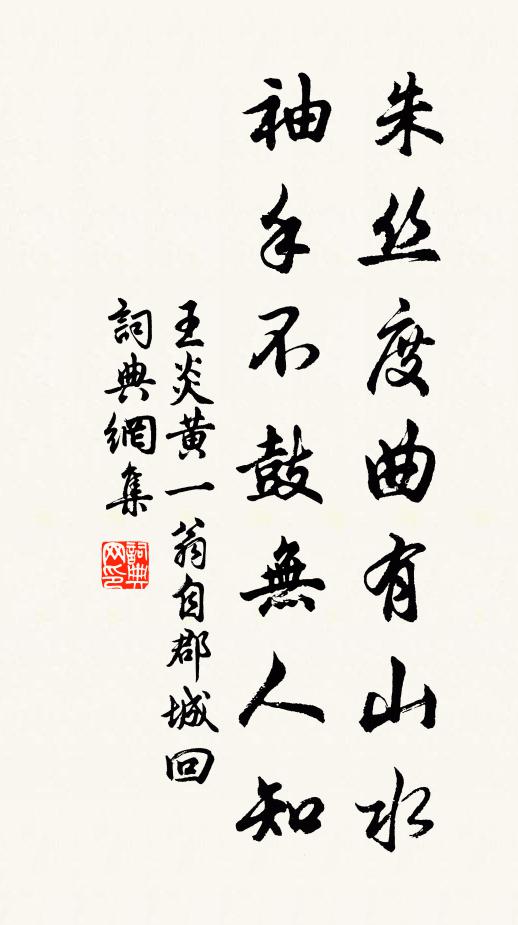 朱丝度曲有山水
袖手不鼓無人知
王炎黄一翁自郡城回
詞典網集
詞典网印